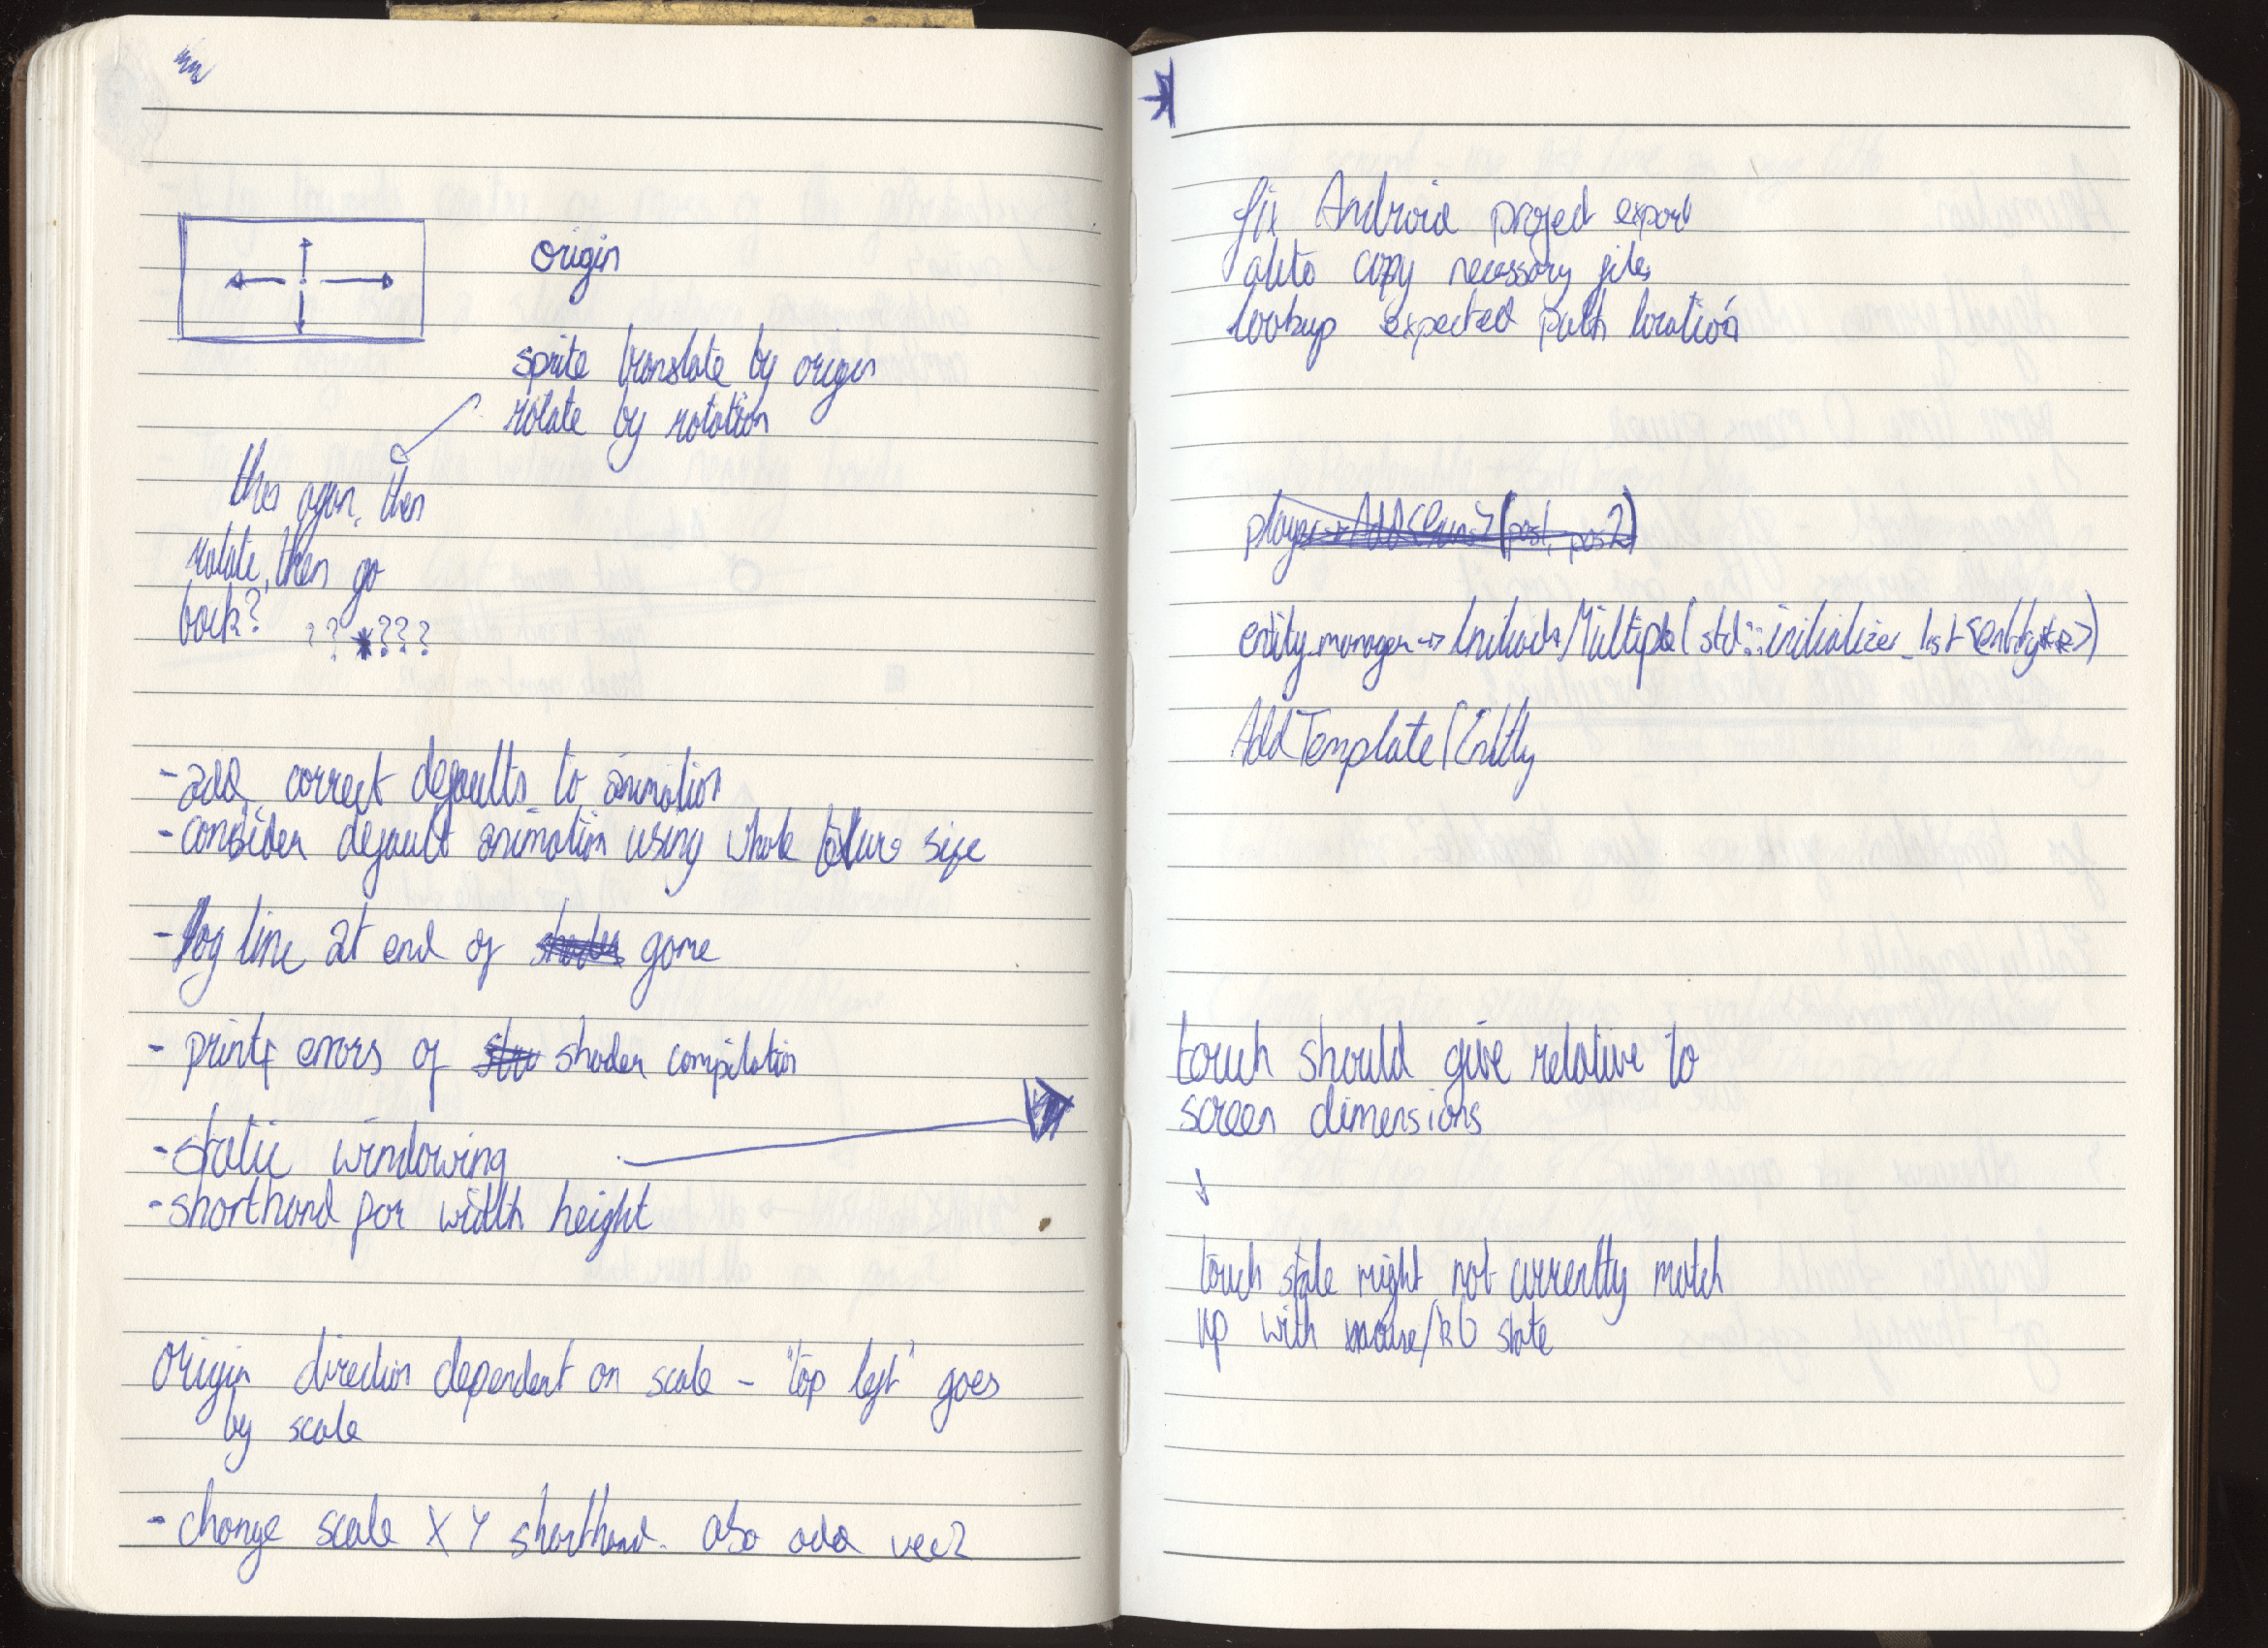 origin
sprite translate by origin
rotate by rotation
this again, then
rotate, then go
back? ?? * ???
- add correct defaults to animation
- consider default animation using whole texture size
- log line at end of game
- printf errors of shader compilation
- static windowing
- shorthand for width height
origin direction dependent on scale - "top left" goes
by scale
- change scale X Y shorthand. also add vec2
fix Android project export
auto copy necessary files
lookup expected path location
player -> Add (pos1, pos2)
entity_manager -> Multiple (std::initializer_list <entity**>)
AddTemplate(Entity
touch should give relative to
screen dimensions
touch state might not currently match
up with mouse/kb state